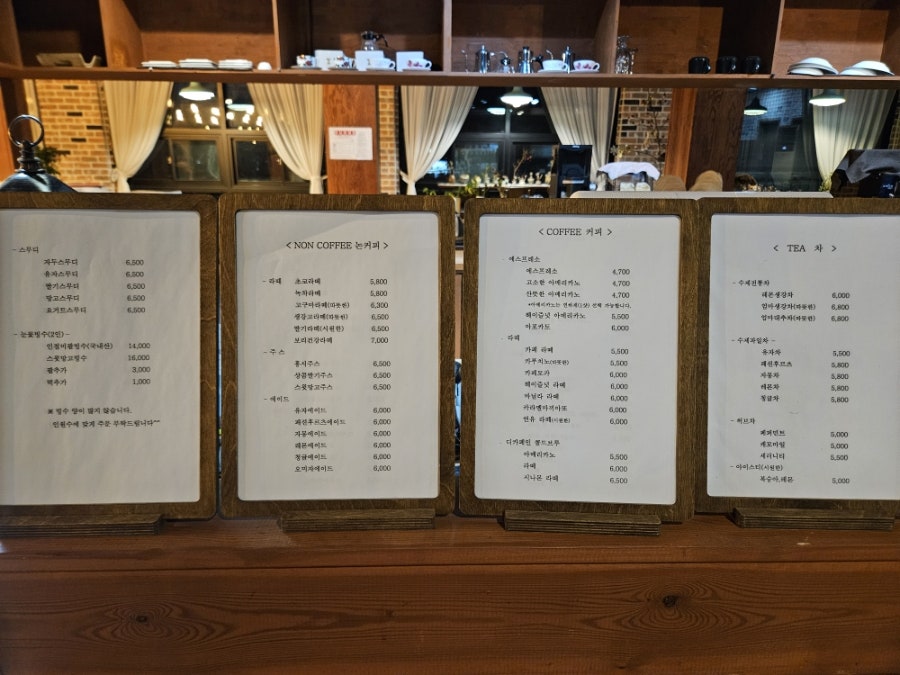 - 스무디
자두스무디 6,500
유자스무디 6,500
딸기스무디 6,500
망고스무디 6,500
요거트스무디 6,500
- 눈꽃빙수(2인) -
인절미팥빙수(국내산) 14,000
스윗망고빙수 16,000
팥추가 3,000
떡추가 1,000
※ 빙수 양이 많지 않습니다.
인원수에 맞게 주문 부탁드립니다^^
< NON COFFEE 논커피 >
- 라떼 초코라떼 5,800
녹차라떼 5,800
고구마라떼(따뜻한) 6,300
생강고라떼(따뜻한) 6,500
딸기라떼(시원한) 6,500
보리건강라떼 7,000
- 주스
홍시주스 6,500
상콤딸기주스 6,500
스윗망고주스 6,500
- 에이드
유자에이드 6,000
패션후르츠에이드 6,000
자몽에이드 6,000
레몬에이드 6,000
청귤에이드 6,000
오미자에이드 6,000
< COFFEE 커피 >
- 에스프레소
에스프레소 4,700
고소한 아메리카노 4,700
산뜻한 아메리카노 4,700
헤이즐넛 아메리카노 5,500
아포카토 6,000
- 라떼
카페 라떼 5,500
카푸치노(따뜻한) 5,500
카페모카 6,000
헤이즐넛 라떼 6,000
바닐라 라떼 6,000
카라멜마끼아또 6,000
연유 라떼(시원한) 6,000
- 디카페인 콜드브루
아메리카노 5,500
라떼 6,000
시나몬 라떼 6,500
< TEA 차 >
- 수제전통차
레몬생강차 6,000
엄마생강차(따뜻한) 6,800
엄마대추차(따뜻한) 6,800
- 수제과일차 -
유자차 5,500
패션후르츠 5,800
자몽차 5,800
레몬차 5,800
청귤차 5,800
- 허브차
페퍼민트 5,000
캐모마일 5,000
세러니티 5,500
- 아이스티(시원한)
복숭아,레몬 5,000